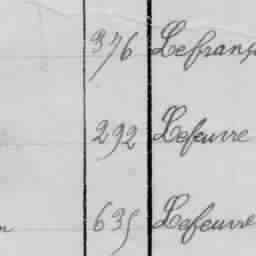 376 Lefranç
292 Lefeuvre
635 Lefeuvre